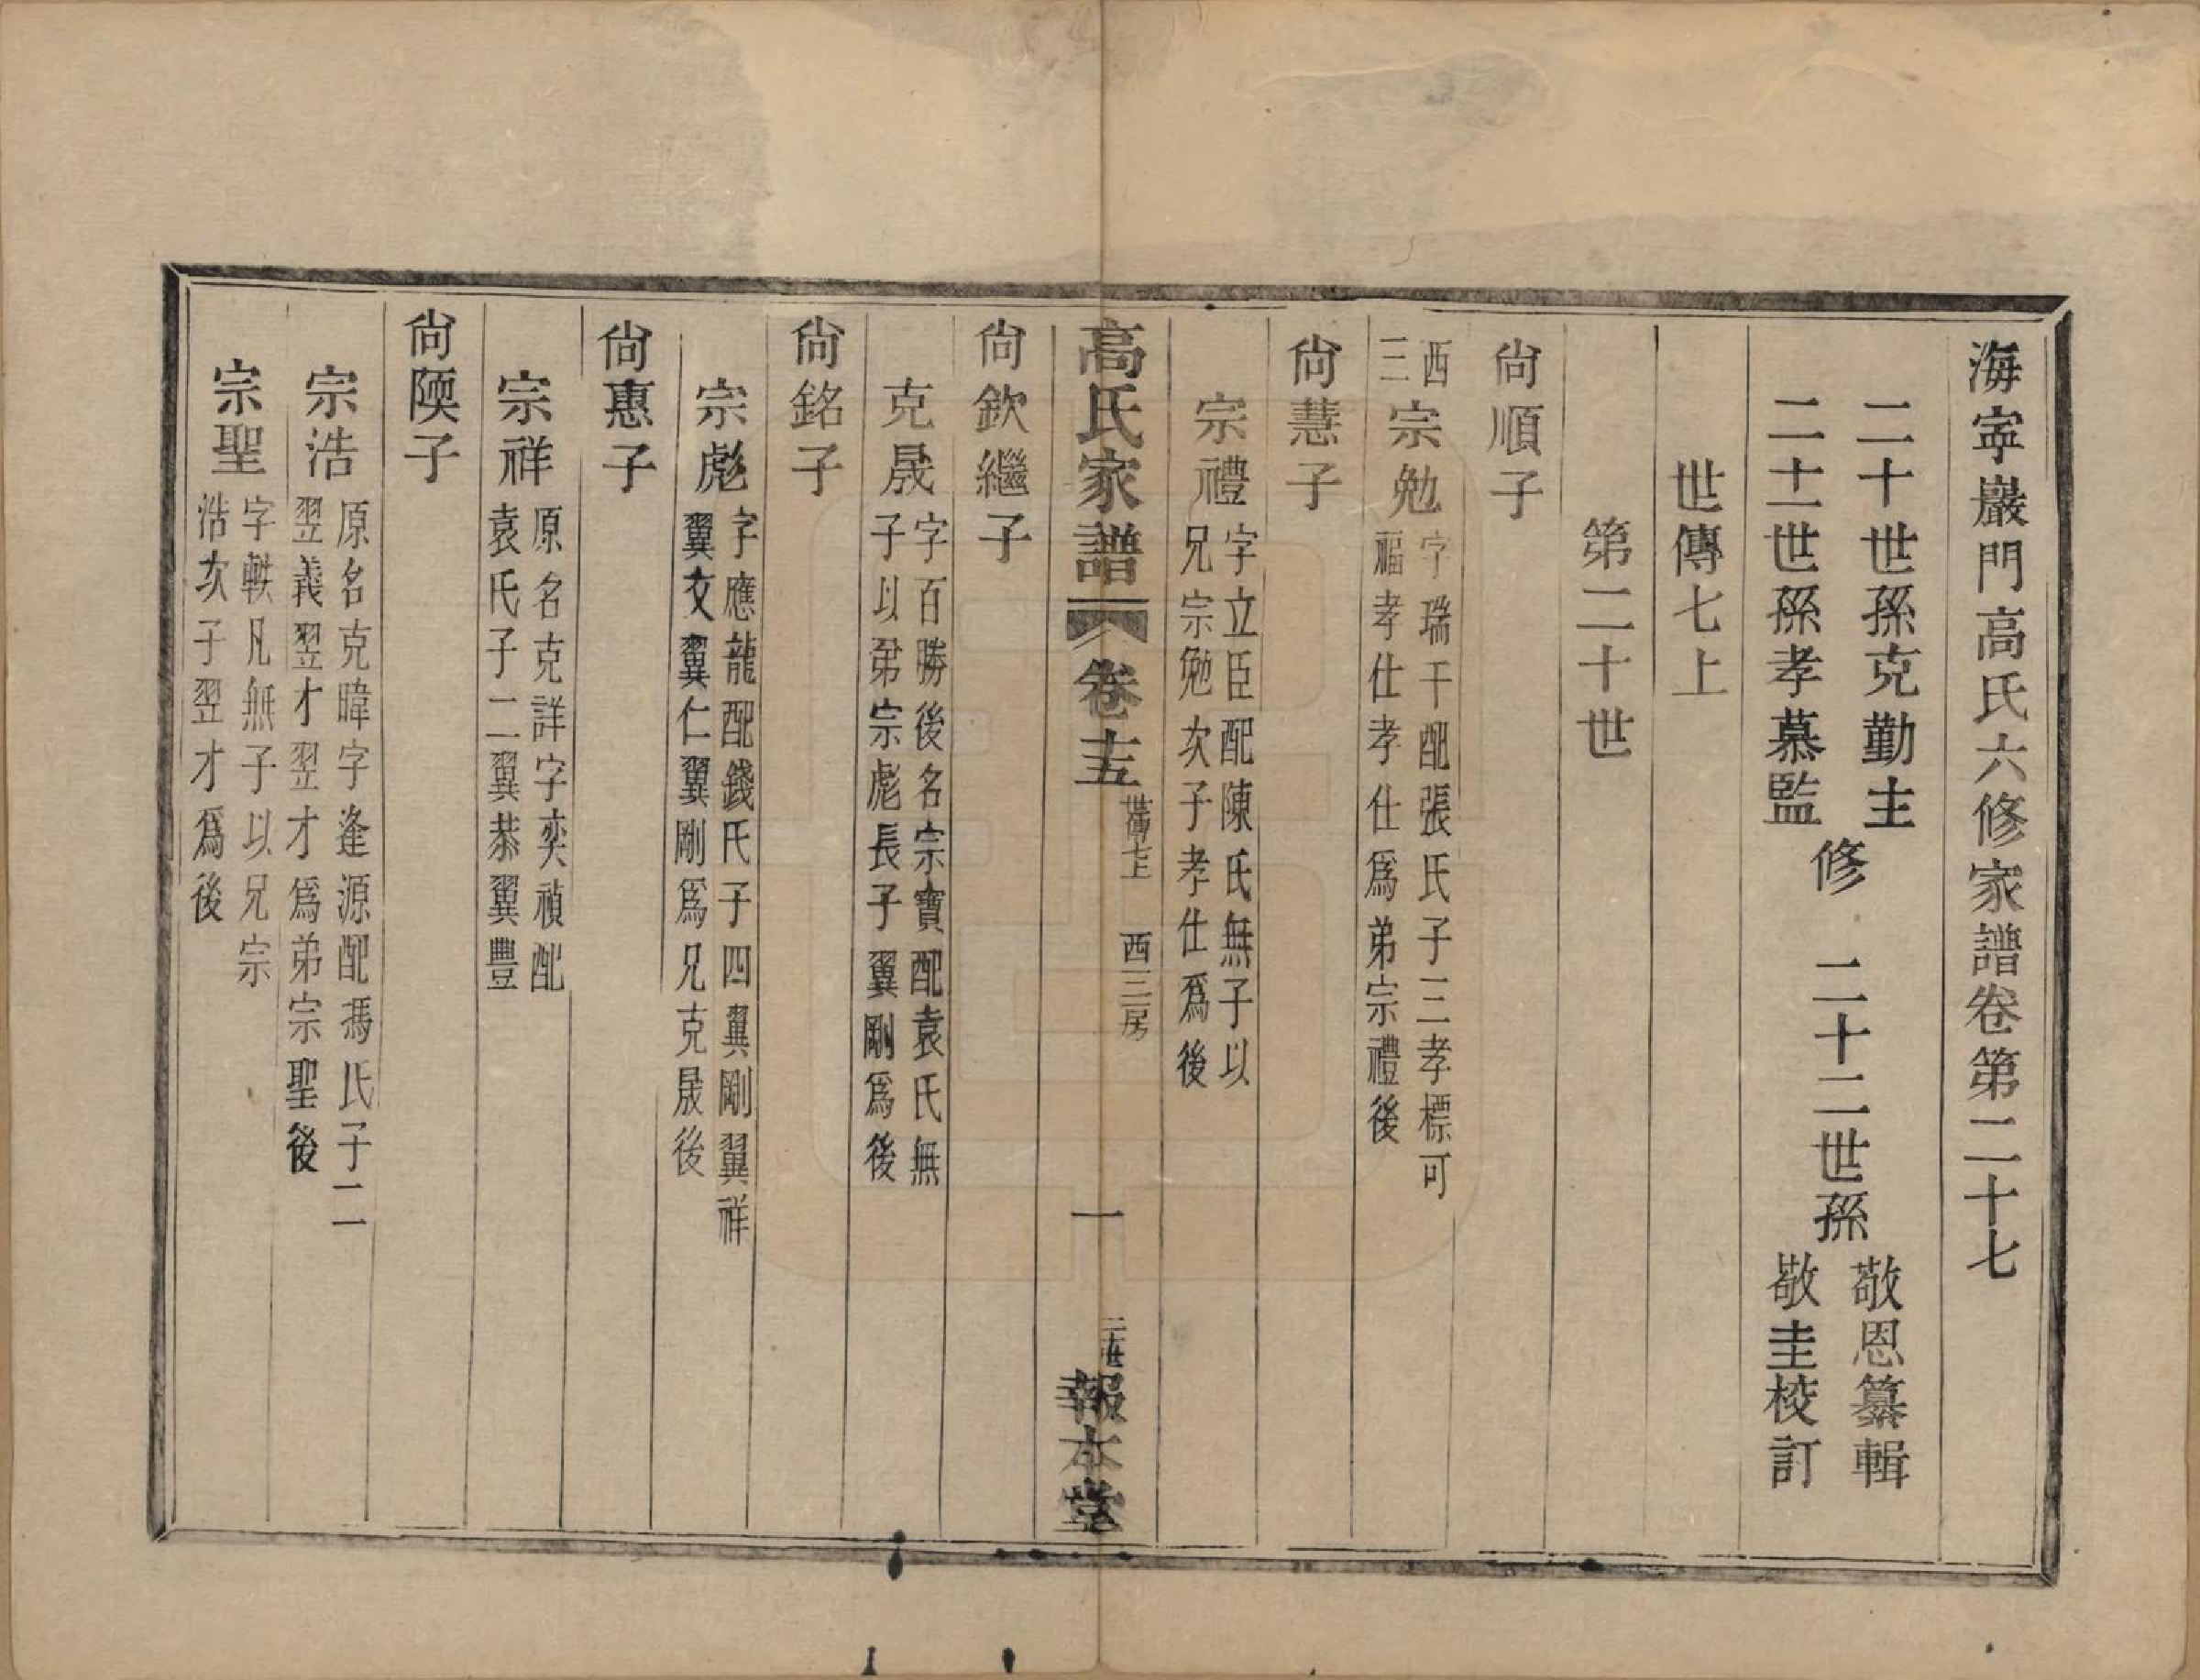 海寍巖門高氏六修家譜卷第二十七
二十世孫克勤主
二十一世孫孝慕監
修
二十二世孫
敬恩纂輯
敬圭校訂
世傳七上
第二十世
尙順子
西三
宗勉
字瑞干配張氏子三孝標可
福孝仕孝仕爲弟宗禮後
尙慧子
宗禮
字立臣配陳氏無子以
兄宗勉次子孝仕爲後
高氏家譜
卷
世傳七上
西三房
一
二十世
報本堂
尙欽繼子
克晟
字百勝後名宗寶配袁氏無
子以弟宗彪長子翼剛爲後
尙銘子
宗彪
字應龍配錢氏子四翼剛翼祥
翼文翼仁翼剛爲兄克晟後
尙惠子
宗祥
原名克詳字奕禎配
袁氏子二翼恭翼豐
尙陾子
宗浩
原名克暐字逢源配馮氏子二
翌義翌才翌才爲弟宗聖後
宗聖
字軼凡無子以兄宗
浩次子翌才爲後